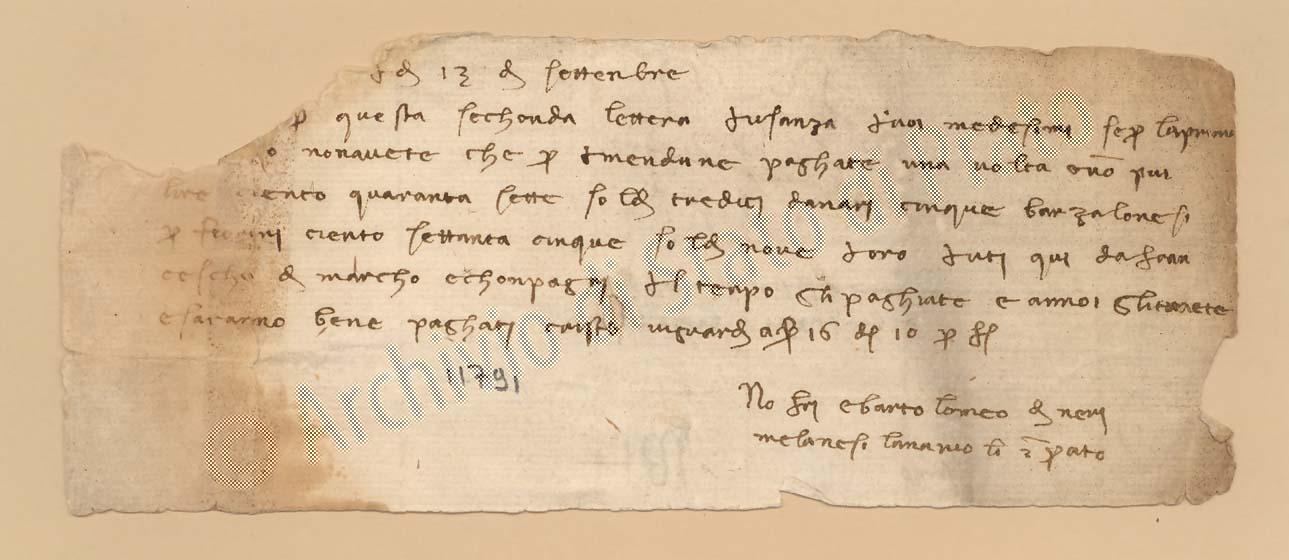 dì 13 di settenbre
per questa sechonda lettera d'usanza a voi medesimi se per la prima
no navete che per amendune paghate una volta
lire ciento quaranta sette soldi tredici danari cinque barzalonesi
per fiorini ciento settanta cinque soldi nove d'oro auti qui da Fran
cescho di marcho e chonpagni al tenpo gli paghiate e a noi gli
e saranno bene paghati cristo vi guardi a s. 16 d. 10 per f.
11791
No fri e bartolomeo di neri
melanesi in prato
© Archivio di Stato di Prato